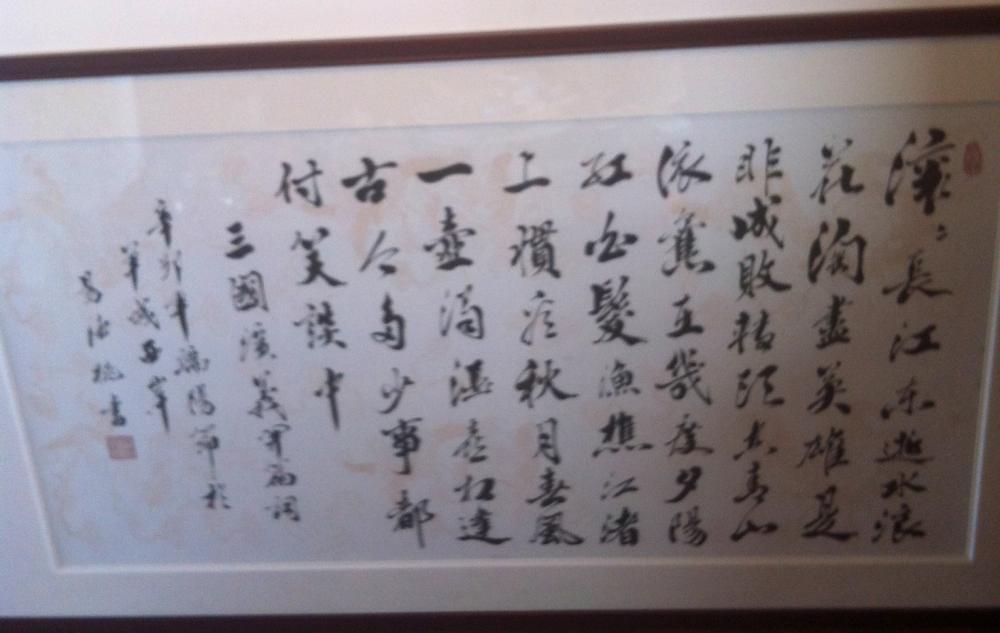 滚〻長江东逝水浪
花淘盡英雄是
非成敗转頭空青山
依舊在幾度夕陽
红白髮渔樵江渚
上慣看秋月春風
一壺濁酒喜相逢
古今多少事都
付笑談中
三國演義開篇词
辛卯年端陽節於
書